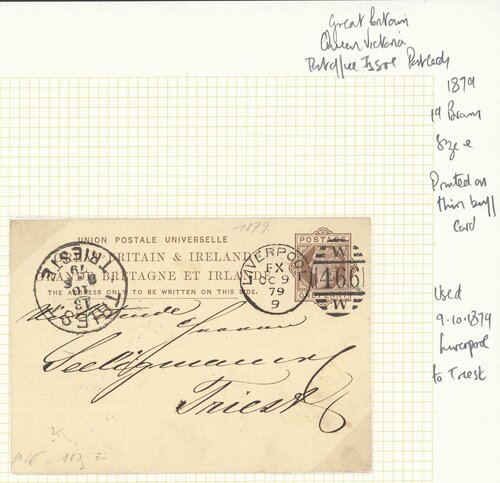 Great Britain
Queen Victoria
Post office Issue Postcards
1879
1d Brown
Size e
Printed on
thin buff
Card
Used
9.10.1879
Liverpool
to Triest
1879.
UNION POSTALE UNIVERSELLE
BRITAIN & IRELAND
BRETAGNE ET IRLANDE
THE ADDRESS ONLY TO BE WRITTEN ON THIS SIDE.
POSTAGE
LIVERPOOL
FX
OC 9
79
9
W
466
W
TRIEST
TRIESTE
13
10
79
Seeligmann
Triest
6